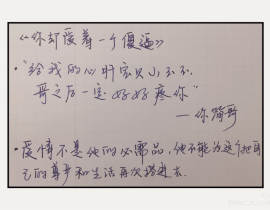 《你却爱着一个傻逼》
·“给我的心肝宝贝小玉玉
哥之后一定好好疼你”
——你简哥
·爱情不是他的必需品,他不能为这个把自
己的尊步和生活再次搭进去.